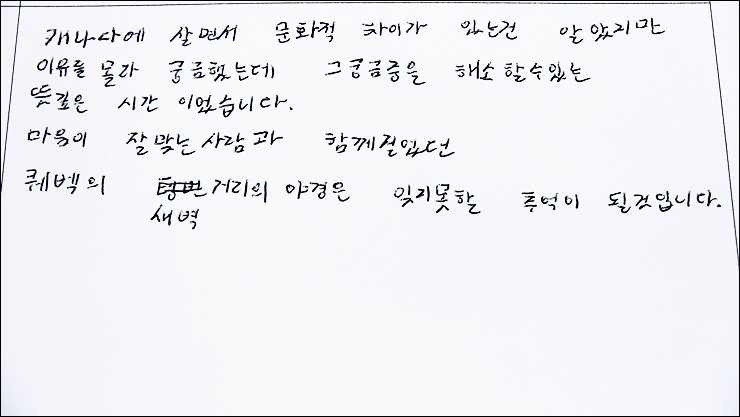 캐나다에 살면서 문화적 차이가 있는건 알았지만
이유를 몰라 궁금했는데 그궁금증을 해소 할수있는
뜻깊은 시간 이었습니다.
마음이 잘맞는사람과 함께걸었던
퀘벡의 거리의 야경은 잊지못할 추억이 될것입니다.
새벽